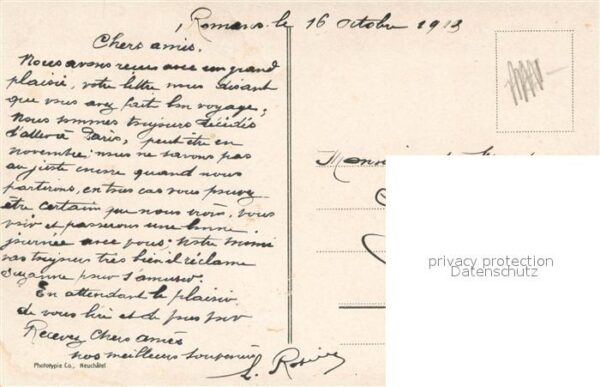 Romans le 16 Octobre 1913
Chers amis,
Nous avons reçus avec un grand
plaisir, votre lettre nous disant
que vous avez fait bon voyage;
Nous sommes toujours décidés
d'aller à Paris, peut être en
novembre, nous ne savons pas
au juste encore quand nous
partirons, en tous cas vous pouvez
être certain que nous irons vous
voir et passerons une bonne
journée avec vous; notre
va toujours très bien il réclame
Suzanne pour s'amuser.
En attendant le plaisir
de vous lire et de
Recevez chers amis
nos meilleurs souvenirs
L.
Phototypie Co., Neuchâtel
privacy protection
Datenschutz